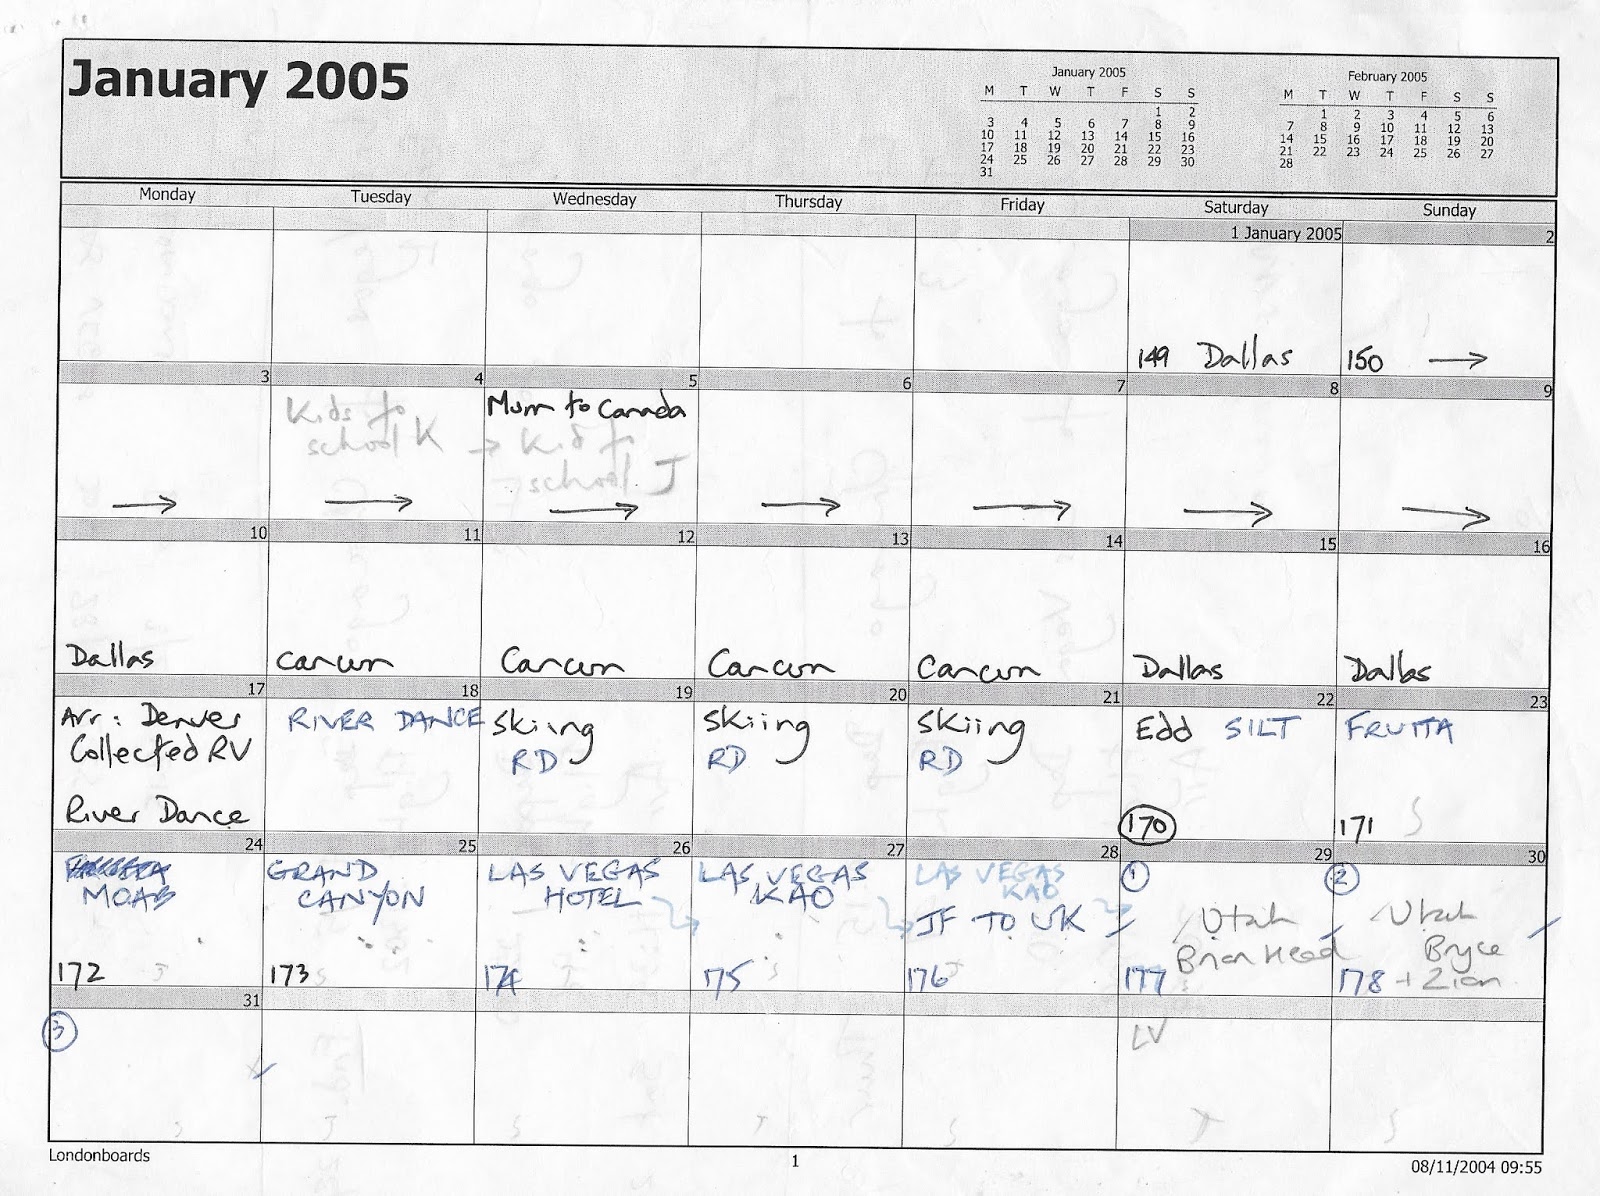 January 2005
January 2005
M T W T F S S
1 2
3 4 5 6 7 8 9
10 11 12 13 14 15 16
17 18 19 20 21 22 23
24 25 26 27 28 29 30
31
February 2005
M T W T F S S
1 2 3 4 5 6
7 8 9 10 11 12 13
14 15 16 17 18 19 20
21 22 23 24 25 26 27
28
Monday Tuesday Wednesday Thursday Friday Saturday Sunday
1 January 2005 2
149 Dallas 150 →
3 4 5 6 7 8 9
Kids to
school K →
Mum to Canada
Kid to
school J
→ → → → → → →
10 11 12 13 14 15 16
Dallas Cancun Cancun Cancun Cancun Dallas Dallas
17 18 19 20 21 22 23
Arr: Denver
Collected RV
River Dance
RIVER DANCE
Skiing
RD
Skiing
RD
Skiing
RD
Edd SILT
170
FRUITA
171 S
24 25 26 27 28 29 30
MOAB
172
GRAND
CANYON
173
LAS VEGAS
HOTEL
174
LAS VEGAS
KAO
175
LAS VEGAS
KAO
JF TO UK
176
1
Utah
Brian Head
177
2
Utah
Bryce
178 + Zion
31
3
LV
Londonboards
1
08/11/2004 09:55